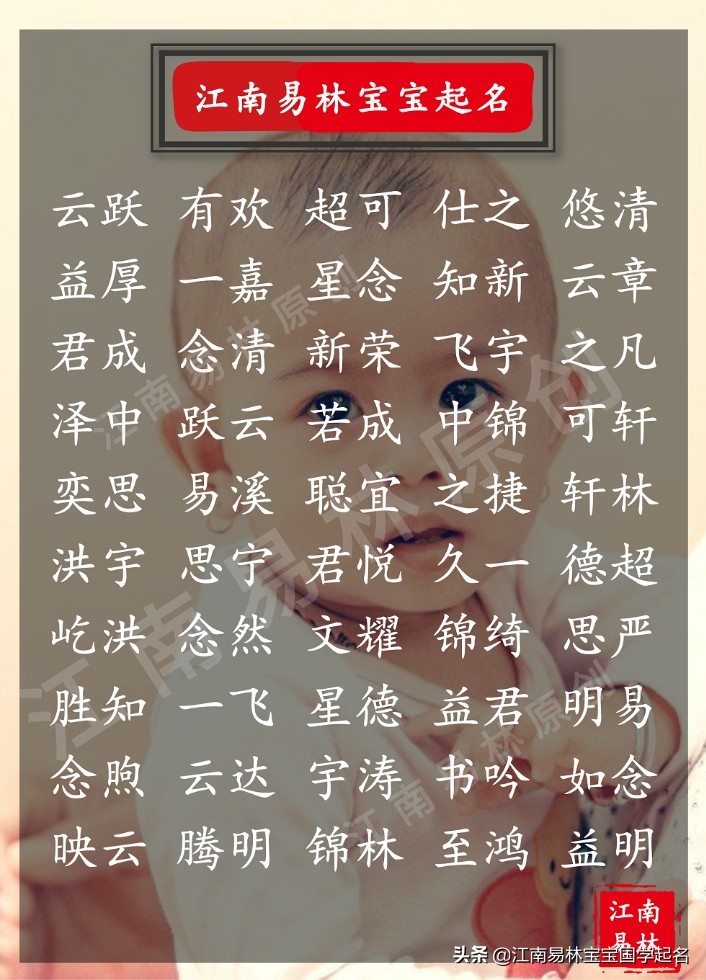 江南易林宝宝起名
云跃 有欢 超可 仕之 悠清
益厚 一嘉 星念 知新 云章
君成 念清 新荣 飞宇 之凡
泽中 跃云 若成 中锦 可轩
奕思 易溪 聪宜 之捷 轩林
洪宇 思宁 君悦 久一 德超
屹洪 念然 文耀 锦绮 思严
胜知 一飞 星德 益君 明易
念煦 云达 宇涛 书吟 如念
映云 腾明 锦林 至鸿 益明
江南易林原创
江南易林原创
江南易林原创
江南
易林
头条 @江南易林宝宝国学起名